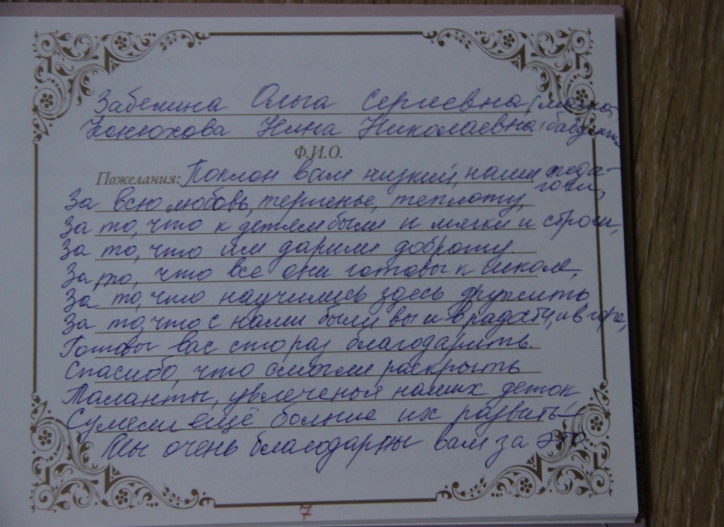 Забелина Ольга Сергеевна (мама)
Конюхова Нина Николаевна (бабушка
Ф.И.О.
Пожелания: Поклон вам низкий, наши педа-
гоги,
За всю любовь, терпенье, теплоту,
За то, что к детям были и мягки и строги,
За то, что им дарили доброту.
За то, что все они готовы к школе,
За то, что научились здесь дружить
За то, что с нами были вы и в радости, и в горе,
Готовы вас сто раз благодарить.
Спасибо, что смогли раскрыть
Таланты, увлеченья наших деток
Сумели ещё больше их развить
Мы очень благодарны вам за это
7